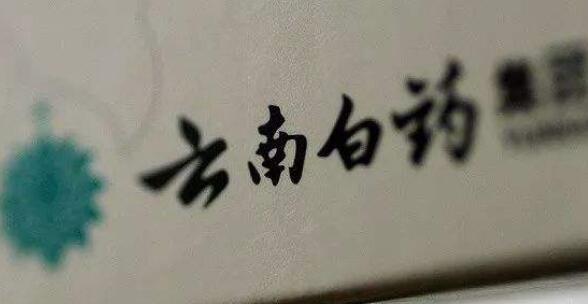 云南白药